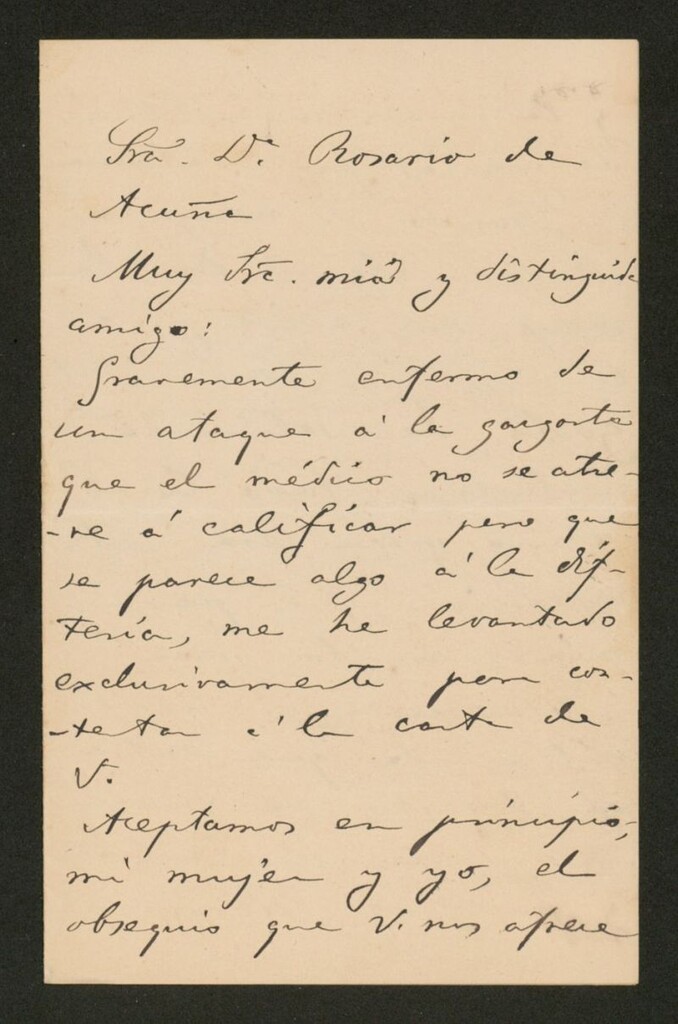 Sra. Dª. Rosario de
Acuña
Muy Sra. mia y distinguida
amiga:
Gravemente enfermo de
un ataque á la garganta
que el médico no se atre-
-ve á calificar pero que
se parece algo á la dif-
teria, me he levantado
exclusivamente para con-
-testar á la carta de
V.
Aceptamos en principio,
mi mujer y yo, el
obsequio que V. nos ofrece